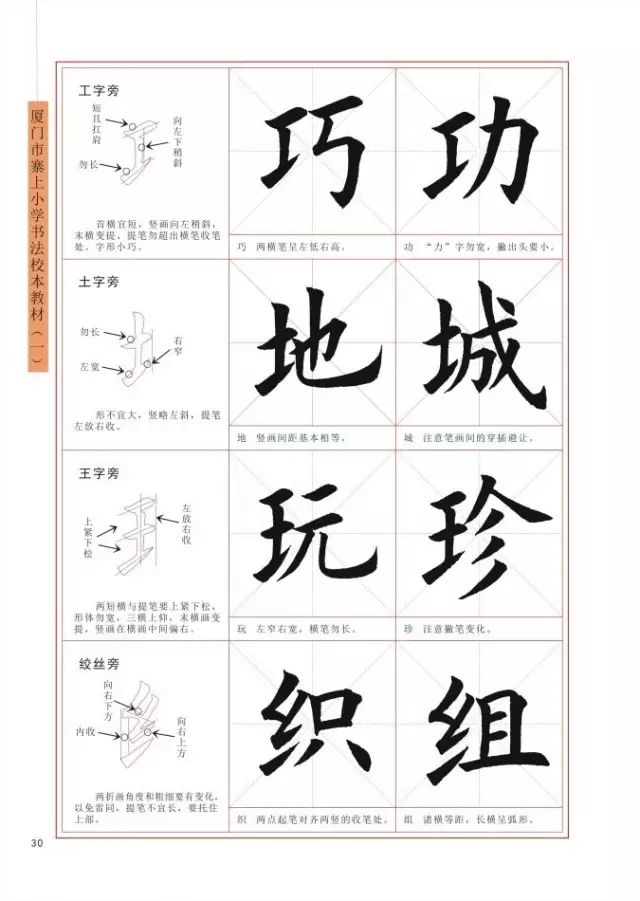 厦门市寨上小学书法校本教材（一）
工字旁
短且扛肩
向左下稍斜
勿长
首横宜短，竖画向左稍斜，
末横变提、提笔勿超出横笔收笔
处。字形小巧。
巧
巧 两横笔呈左低右高。
功
功 “力”字勿宽，撇出头要小。
土字旁
勿长
左宽
右窄
形不宜大，竖略左斜，提笔
左放右收。
地
地 竖画间距基本相等。
城
城 注意笔画间的穿插避让。
王字旁
上紧下松
左放右收
两短横与提笔要上紧下松，
形体勿宽，三横上仰，末横画变
提，竖画在横画中间偏右。
玩
玩 左窄右宽，横笔勿长。
珍
珍 注意撇笔变化。
绞丝旁
向右下方
内收
向右上方
两折画角度和粗细要有变化，
以免雷同，提笔不宜长，要托住
上部。
织
织 两点起笔对齐两竖的收笔处。
组
组 诸横等距，长横呈弧形。
30